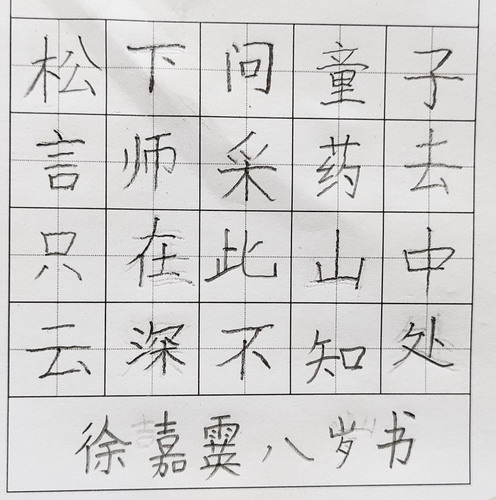 松下问童子
言师采药去
只在此山中
云深不知处
徐嘉霙八岁书